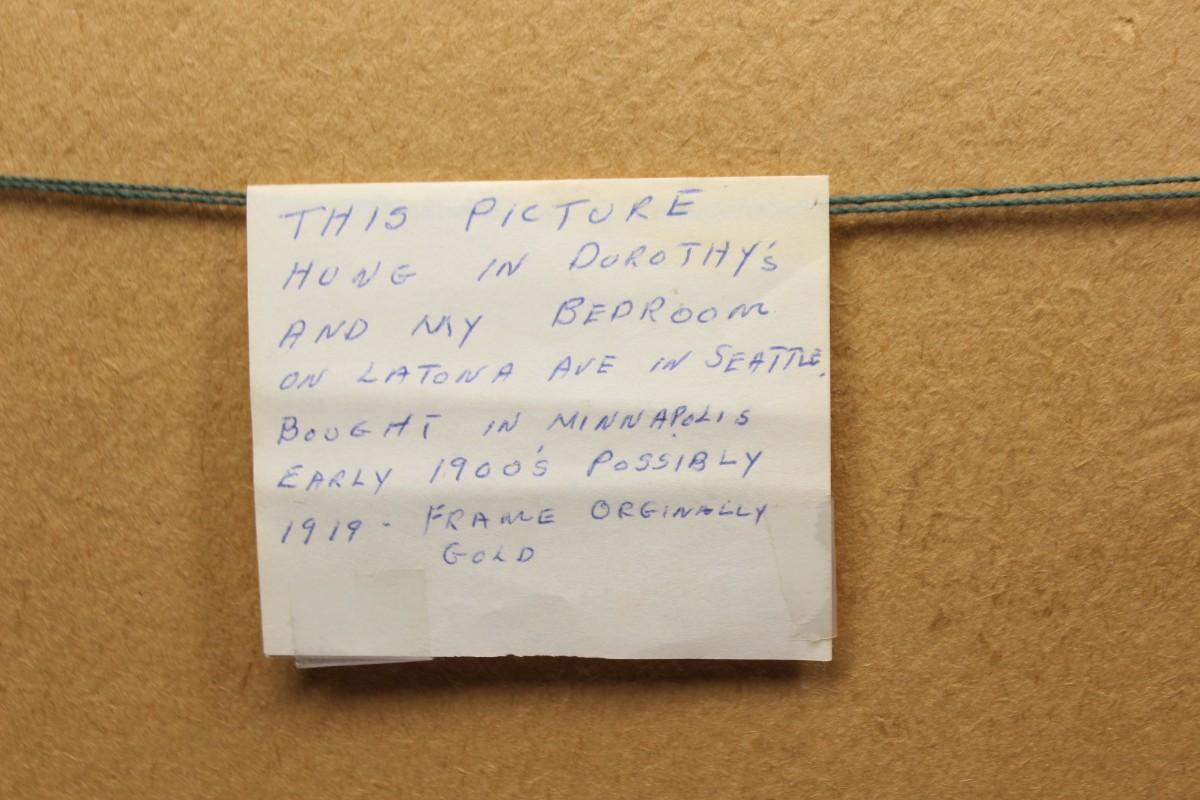 THIS PICTURE
HUNG IN DOROTHY'S
AND MY BEDROOM
ON LATONA AVE IN SEATTLE.
BOUGHT IN MINNAPOLIS
EARLY 1900'S POSSIBLY
1919 - FRAME ORGINALLY
GOLD